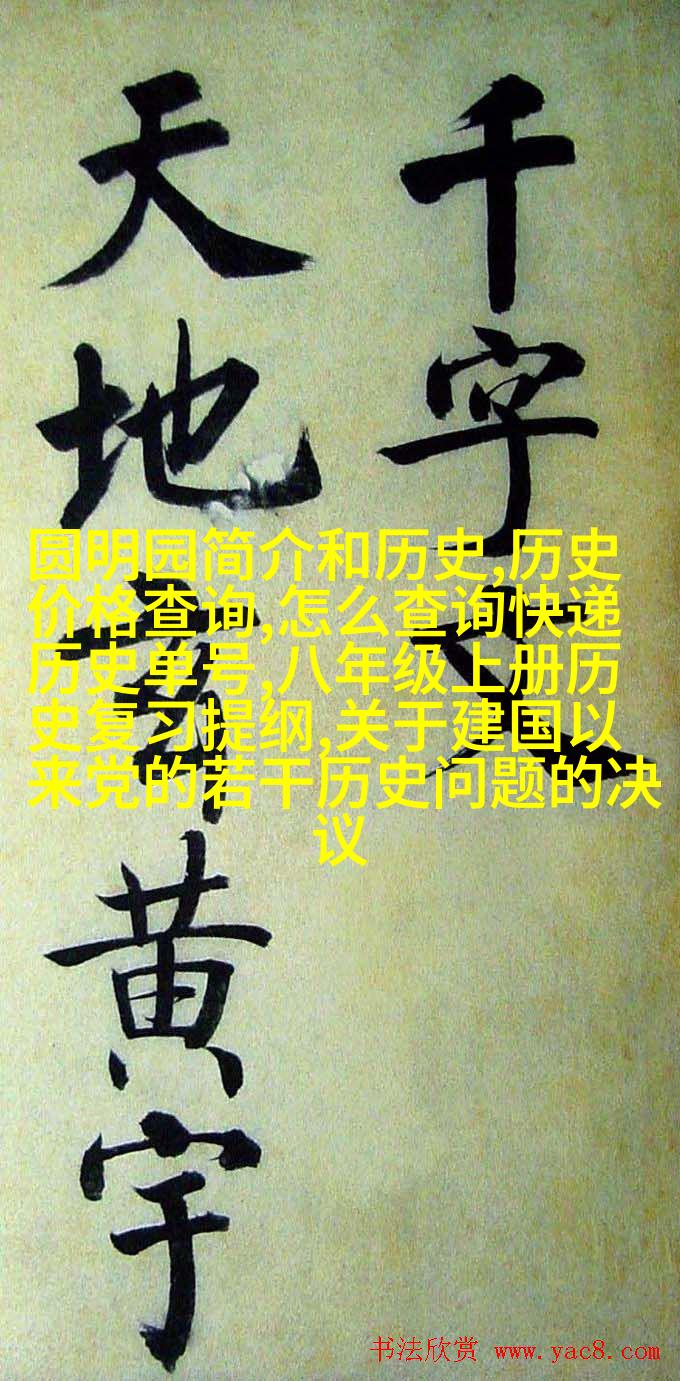 千字文
天地黄宇
圆明园简介和历史,历史
价格查询,怎么查询快递
历史单号,八年级上册历
史复习提纲,关于建国以
来党的若干历史问题的决
议
书法欣赏 www.yac8.com